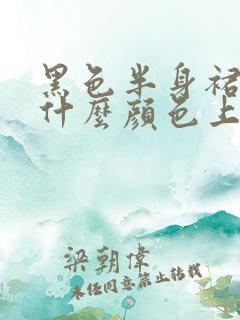 黑色半身裙
什麼顏色上
梁朝偉
未经同意禁止转载